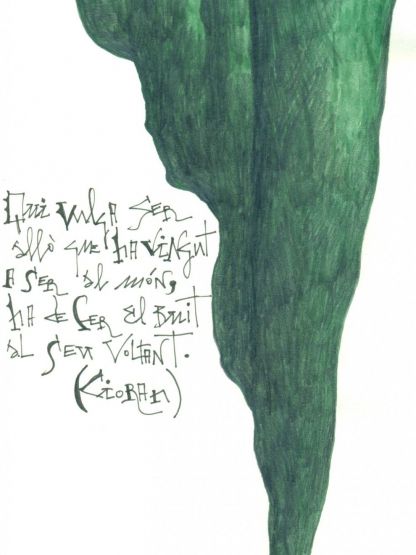 Qui vulga ser
allò que l'ha vingut
a ser al món,
ha de fer el buit
al seu voltant.
(Cioran)